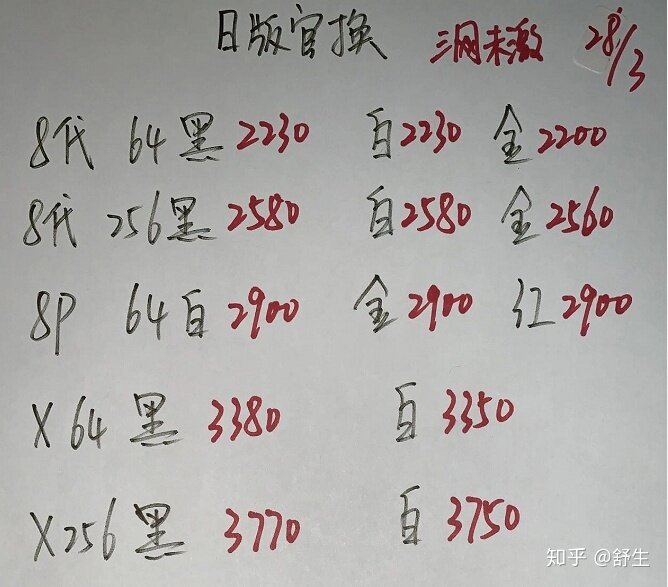 日版官换 三网未激 28/3
8代 64 黑 2230 白 2230 金 2200
8代 256 黑 2580 白 2580 金 2560
8P 64 白 2900 金 2900 红 2900
X 64 黑 3380 白 3350
X 256 黑 3770 白 3750
知乎 @舒生